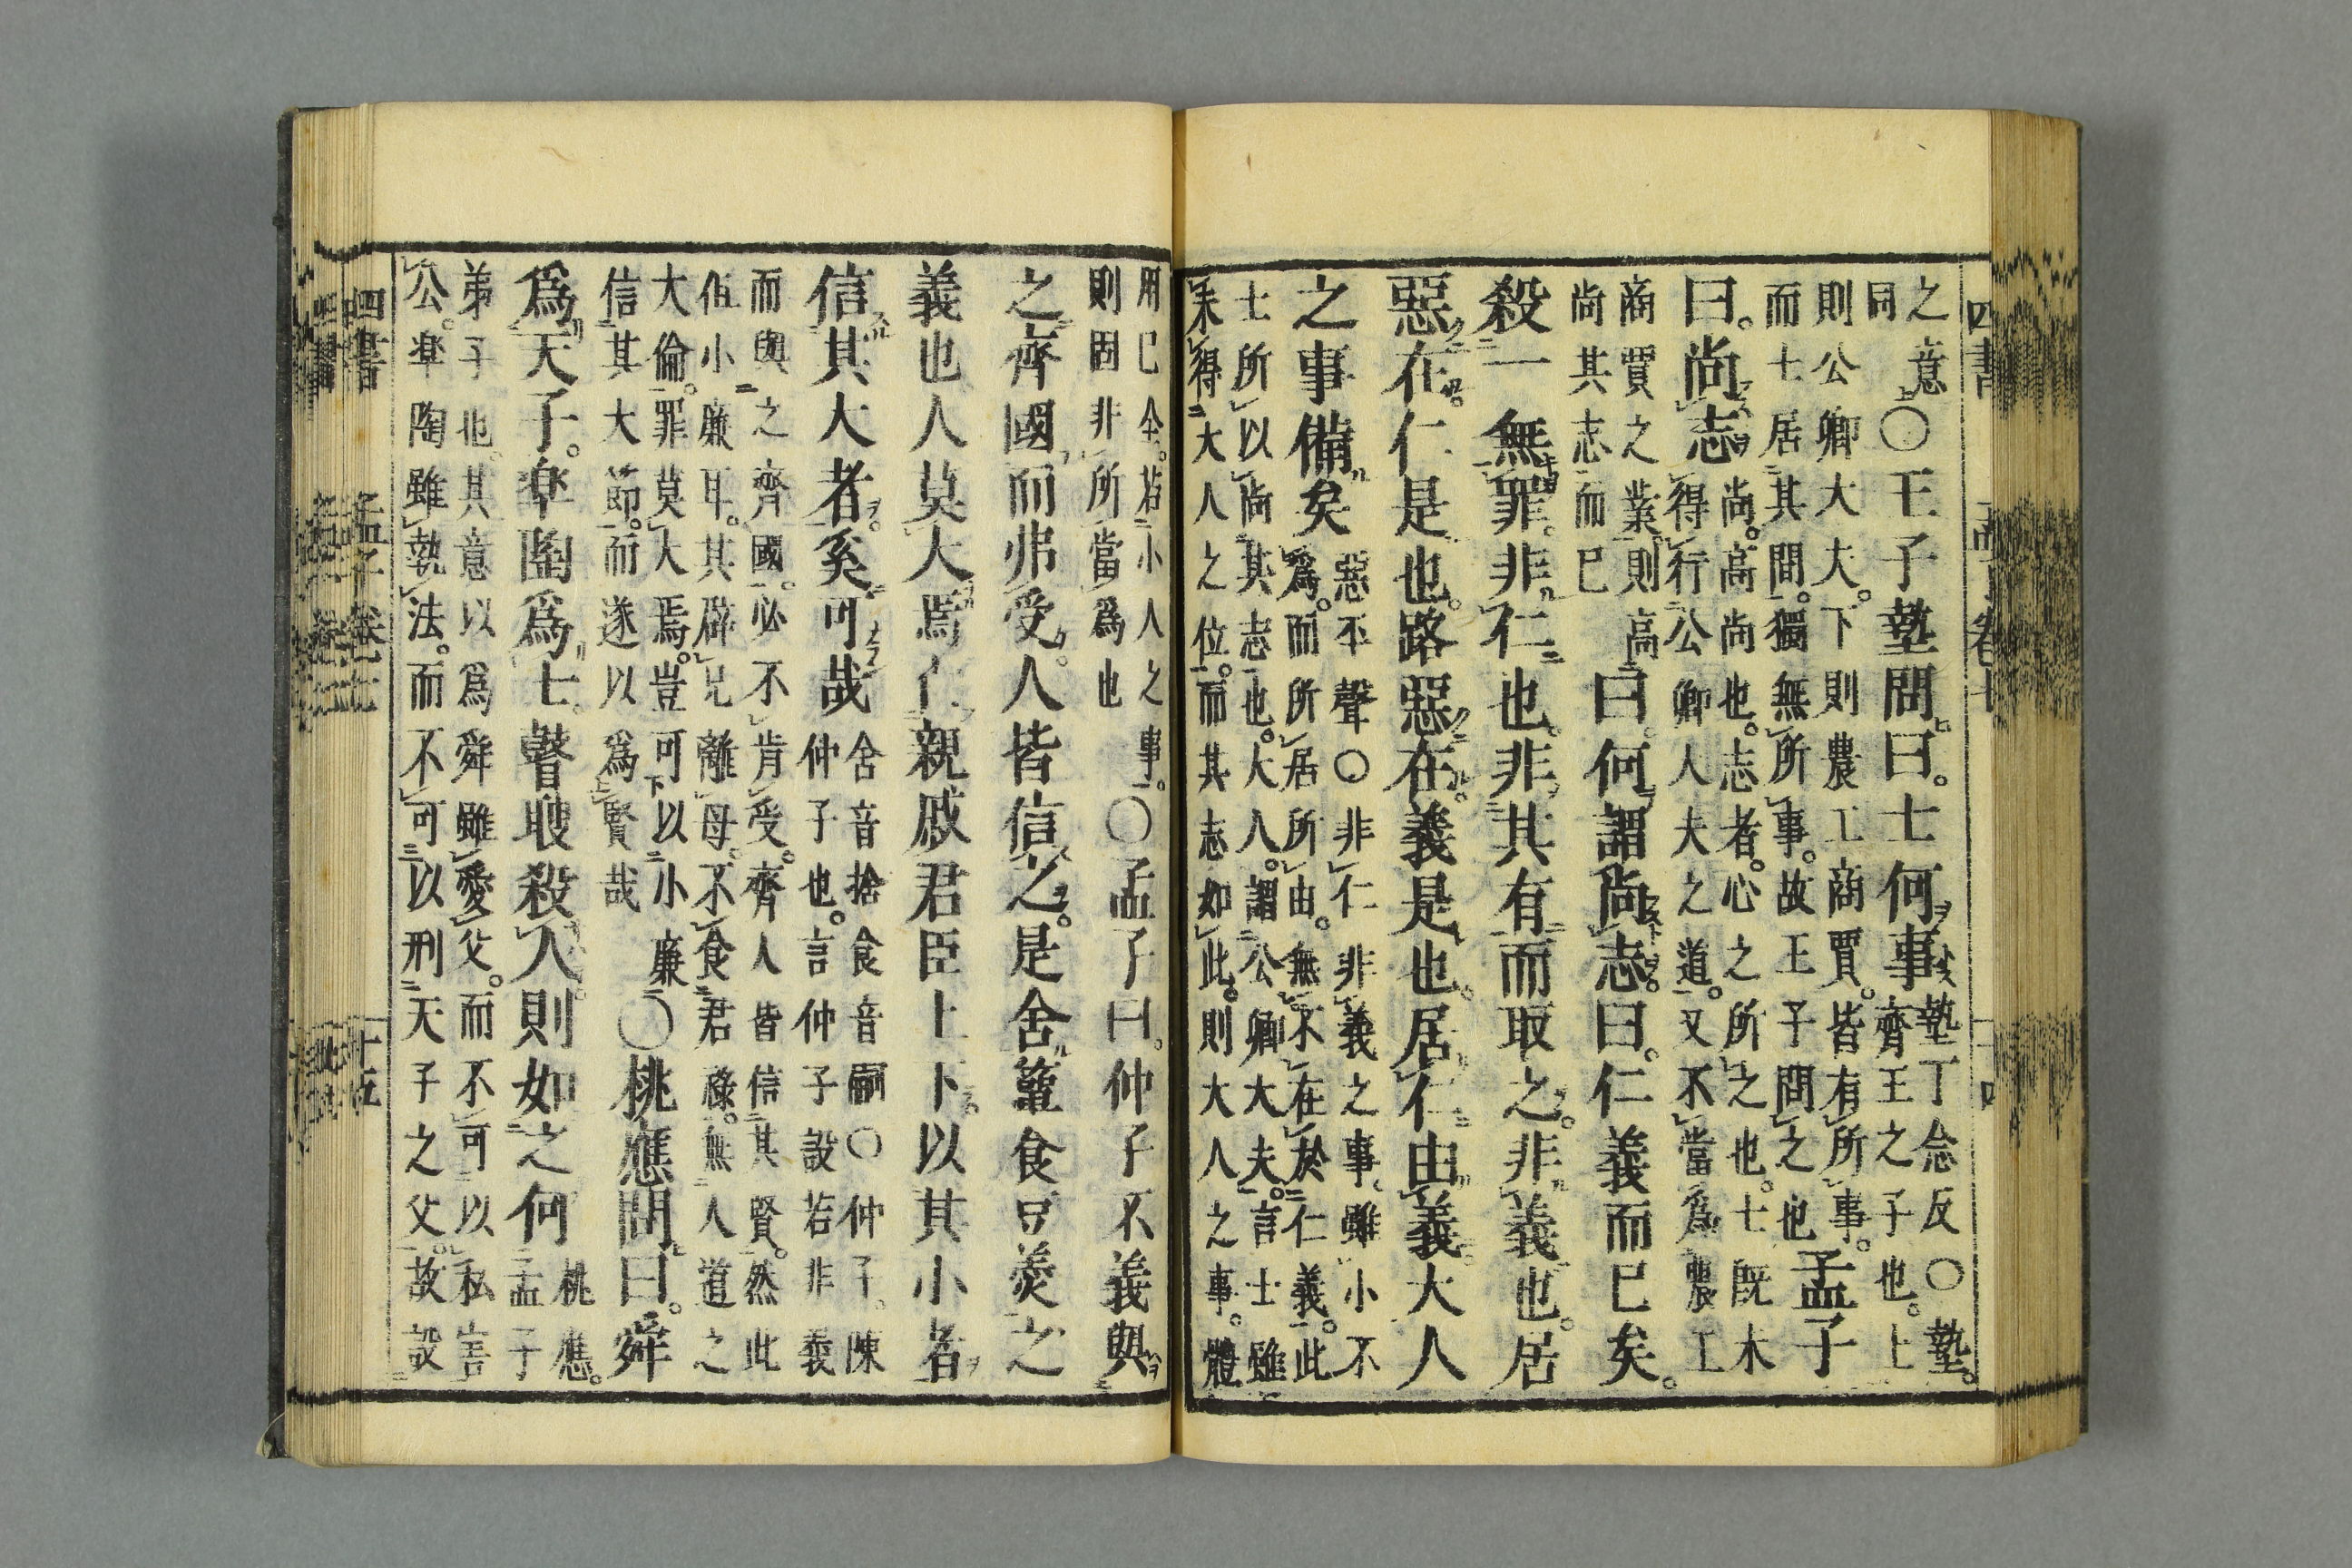 四書 孟子卷七 十四
之意
同
○王子墊問曰。士何事
墊丁念反○墊。
齊王之子也。上
則公卿大夫。下則農工商賈。皆有所事。
而士居其間。獨無所事。故王子問之也
孟子
曰。尚志
尚。高尚也。志者。心之所之也。士既未
得行公卿大夫之道。又不當爲農工
商賈之業。則高
尚其志而已
曰。何謂尚志。曰。仁義而已矣。
殺一無罪。非仁也。非其有而取之。非義也。居
惡在。仁是也。路惡在。義是也。居仁由義。大人
之事備矣
惡平聲○非仁非義之事。雖小不
爲。而所居所由。無不在於仁義。此
士所以尚其志也。大人。謂公卿大夫。言士雖
未得大人之位。而其志如此。則大人之事。體
用已全。若小人之事。
則固非所當爲也
○孟子曰。仲子不義與
之齊國而弗受。人皆信之。是舍簞食豆羹之
義也人莫大焉亡親戚君臣上下。以其小者
信其大者。奚可哉
舍音捨食音嗣○仲子。陳
仲子也。言仲子設若非義
而與之齊國。必不肯受。齊人皆信其賢。然此
但小廉耳。其辟兄離母。不食君祿。無人道之
大倫。罪莫大焉。豈可以小廉
信其大節。而遂以爲賢哉
○桃應問曰。舜
爲天子。皐陶爲士。瞽瞍殺人。則如之何
桃應。
孟子
弟子也。其意以爲舜雖愛父。而不可以私害
公。皐陶雖執法。而不可以刑天子之父。故設
四書 孟子卷七 十五